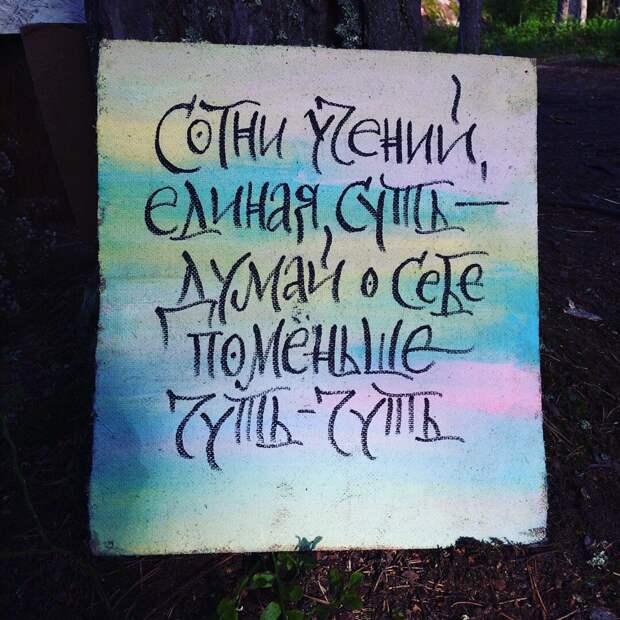 Сотни учений,
единая суть —
думай о себе
помёньше
чуть-чуть